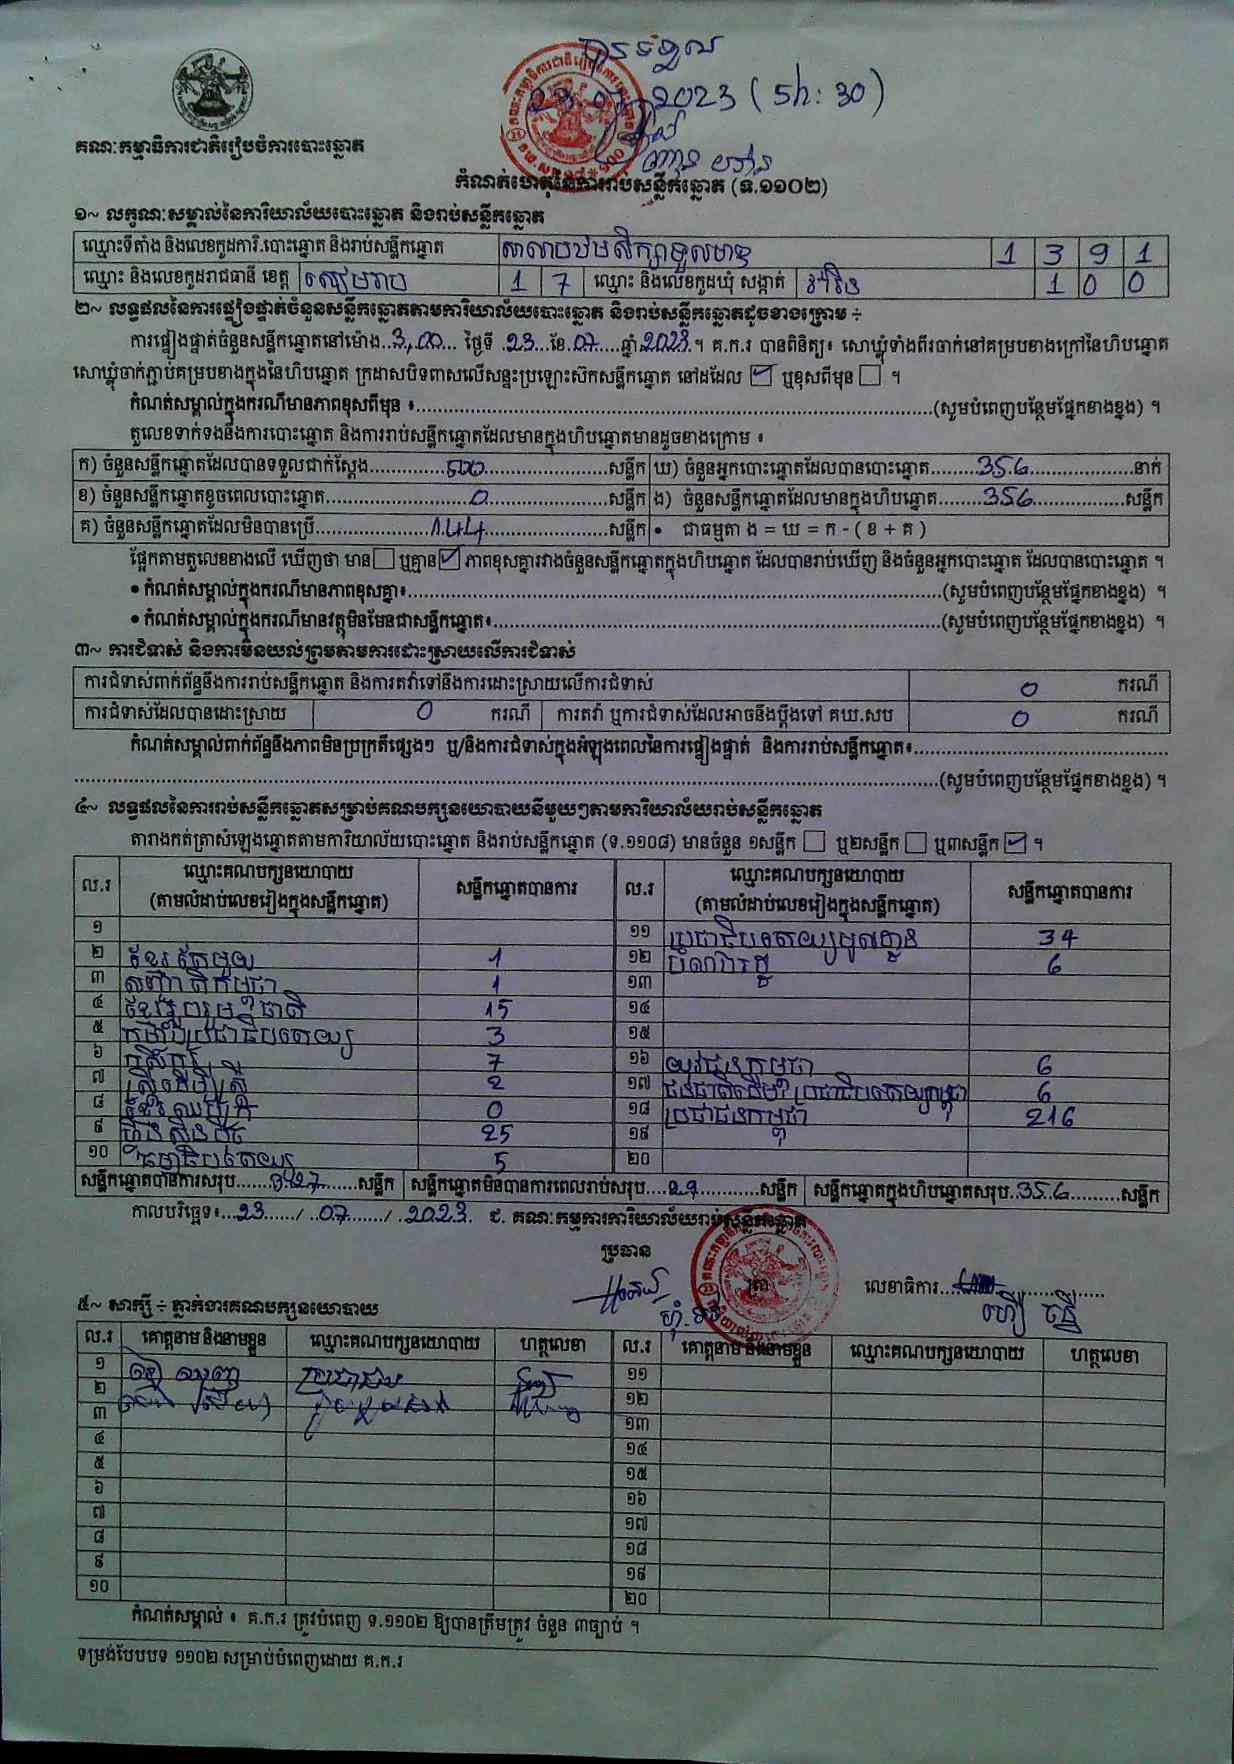 បានទទួល
23 07 2023 ( 5h : 30 )
គណៈកម្មាធិការជាតិរៀបចំការបោះឆ្នោត
កំណត់ហេតុនៃការរាប់សន្លឹកឆ្នោត (ទ.១១០២)
១~ លក្ខណៈសម្គាល់នៃការិយាល័យបោះឆ្នោត និងរាប់សន្លឹកឆ្នោត
ឈ្មោះទីតាំង និងលេខកូដការិ.បោះឆ្នោត និងរាប់សន្លឹកឆ្នោត សាលាបឋមសិក្សា 1 3 9 1
ឈ្មោះ និងលេខកូដរាជធានី ខេត្ត សៀមរាប 1 7 ឈ្មោះ និងលេខកូដឃុំ សង្កាត់ 1 0 0
២~ លទ្ធផលនៃការផ្ទៀងផ្ទាត់ចំនួនសន្លឹកឆ្នោតតាមការិយាល័យបោះឆ្នោត និងរាប់សន្លឹកឆ្នោតដូចខាងក្រោម ÷
ការផ្ទៀងផ្ទាត់ចំនួនសន្លឹកឆ្នោតនៅម៉ោង..3,00... ថ្ងៃទី .23...ខែ.07.....ឆ្នាំ.2023.។ គ.ក.រ បានពិនិត្យ៖ សោឃ្លុំទាំងពីរចាក់នៅគម្របខាងក្រៅនៃហិបឆ្នោត
សោឃ្លុំចាក់ភ្ជាប់គម្របខាងក្នុងនៃហិបឆ្នោត ក្រដាសបិទពាសលើសន្ទះប្រឡោះស៊កសន្លឹកឆ្នោត នៅដដែល ☑ ឬខុសពីមុន ☐ ។
កំណត់សម្គាល់ក្នុងករណីមានភាពខុសពីមុន ៖........(សូមបំពេញបន្ថែមផ្នែកខាងខ្នង) ។
តួលេខទាក់ទងនឹងការបោះឆ្នោត និងការរាប់សន្លឹកឆ្នោតដែលមានក្នុងហិបឆ្នោតមានដូចខាងក្រោម ៖
ក) ចំនួនសន្លឹកឆ្នោតដែលបានទទួលជាក់ស្តែង........500........សន្លឹក ឃ) ចំនួនអ្នកបោះឆ្នោតដែលបានបោះឆ្នោត........356........នាក់
ខ) ចំនួនសន្លឹកឆ្នោតខូចពេលបោះឆ្នោត........0........សន្លឹក ង) ចំនួនសន្លឹកឆ្នោតដែលមានក្នុងហិបឆ្នោត........356........សន្លឹក
គ) ចំនួនសន្លឹកឆ្នោតដែលមិនបានប្រើ........144........សន្លឹក • ជាធម្មតា ង = ឃ = ក - ( ខ + គ )
ផ្អែកតាមតួលេខខាងលើ ឃើញថា មាន ☐ ឬគ្មាន ☑ ភាពខុសគ្នារវាងចំនួនសន្លឹកឆ្នោតក្នុងហិបឆ្នោត ដែលបានរាប់ឃើញ និងចំនួនអ្នកបោះឆ្នោត ដែលបានបោះឆ្នោត ។
• កំណត់សម្គាល់ក្នុងករណីមានភាពខុសគ្នា៖........(សូមបំពេញបន្ថែមផ្នែកខាងខ្នង) ។
• កំណត់សម្គាល់ក្នុងករណីមានវត្ថុមិនមែនជាសន្លឹកឆ្នោត៖........(សូមបំពេញបន្ថែមផ្នែកខាងខ្នង) ។
៣~ ការជំទាស់ និងការមិនយល់ព្រមតាមការដោះស្រាយលើការជំទាស់
ការជំទាស់ពាក់ព័ន្ធនឹងការរាប់សន្លឹកឆ្នោត និងការតវ៉ាទៅនឹងការដោះស្រាយលើការជំទាស់ 0 ករណី
ការជំទាស់ដែលបានដោះស្រាយ 0 ករណី ការតវ៉ា ឬការជំទាស់ដែលអាចនឹងប្តឹងទៅ គឃ.សប 0 ករណី
កំណត់សម្គាល់ពាក់ព័ន្ធនឹងភាពមិនប្រក្រតីផ្សេងៗ ឬ/និងការជំទាស់ក្នុងអំឡុងពេលនៃការផ្ទៀងផ្ទាត់ និងការរាប់សន្លឹកឆ្នោត៖........
........(សូមបំពេញបន្ថែមផ្នែកខាងខ្នង) ។
៤~ លទ្ធផលនៃការរាប់សន្លឹកឆ្នោតសម្រាប់គណបក្សនយោបាយនីមួយៗតាមការិយាល័យរាប់សន្លឹកឆ្នោត
តារាងកត់ត្រាសំឡេងឆ្នោតតាមការិយាល័យបោះឆ្នោត និងរាប់សន្លឹកឆ្នោត (ទ.១១០៨) មានចំនួន ១សន្លឹក ☐ ឬ២សន្លឹក ☐ ឬ៣សន្លឹក ☑ ។
ល.រ ឈ្មោះគណបក្សនយោបាយ (តាមលំដាប់លេខរៀងក្នុងសន្លឹកឆ្នោត) សន្លឹកឆ្នោតបានការ ល.រ ឈ្មោះគណបក្សនយោបាយ (តាមលំដាប់លេខរៀងក្នុងសន្លឹកឆ្នោត) សន្លឹកឆ្នោតបានការ
១ ១១ ប្រជាធិបតេយ្យមូលដ្ឋាន 34
២ ខ្មែរតែមួយ 1 ១២ 6
៣ សញ្ជាតិកម្ពុជា 1 ១៣
៤ ខ្មែររួបរួមជាតិ 15 ១៤
៥ កម្លាំងប្រជាធិបតេយ្យ 3 ១៥
៦ កសិករ 7 ១៦ យុវជនកម្ពុជា 6
៧ ស្ត្រីដើម្បីស្ត្រី 2 ១៧ ជនជាតិដើមប្រជាធិបតេយ្យកម្ពុជា 6
៨ 0 ១៨ ប្រជាជនកម្ពុជា 216
៩ ហ៊្វុនស៊ិនប៉ិច 25 ១៩
១០ ធម្មាធិបតេយ្យ 5 ២០
សន្លឹកឆ្នោតបានការសរុប......327......សន្លឹក សន្លឹកឆ្នោតមិនបានការពេលរាប់សរុប....29......សន្លឹក សន្លឹកឆ្នោតក្នុងហិបឆ្នោតសរុប.356......សន្លឹក
កាលបរិច្ឆេទ៖...23....../ ..07....../ .2023. ជ. គណៈកម្មការការិយាល័យរាប់សន្លឹកឆ្នោត
ប្រធាន ត្រា លេខាធិការ........
៥~ សាក្សី ÷ ភ្នាក់ងារគណបក្សនយោបាយ
ល.រ គោត្តនាម និងនាមខ្លួន ឈ្មោះគណបក្សនយោបាយ ហត្ថលេខា ល.រ គោត្តនាម និងនាមខ្លួន ឈ្មោះគណបក្សនយោបាយ ហត្ថលេខា
១ ប្រជាជន ១១
២ ១២
៣ ១៣
៤ ១៤
៥ ១៥
៦ ១៦
៧ ១៧
៨ ១៨
៩ ១៩
១០ ២០
កំណត់សម្គាល់ ៖ គ.ក.រ ត្រូវបំពេញ ទ.១១០២ ឱ្យបានត្រឹមត្រូវ ចំនួន ៣ច្បាប់ ។
ទម្រង់បែបបទ ១១០២ សម្រាប់បំពេញដោយ គ.ក.រ